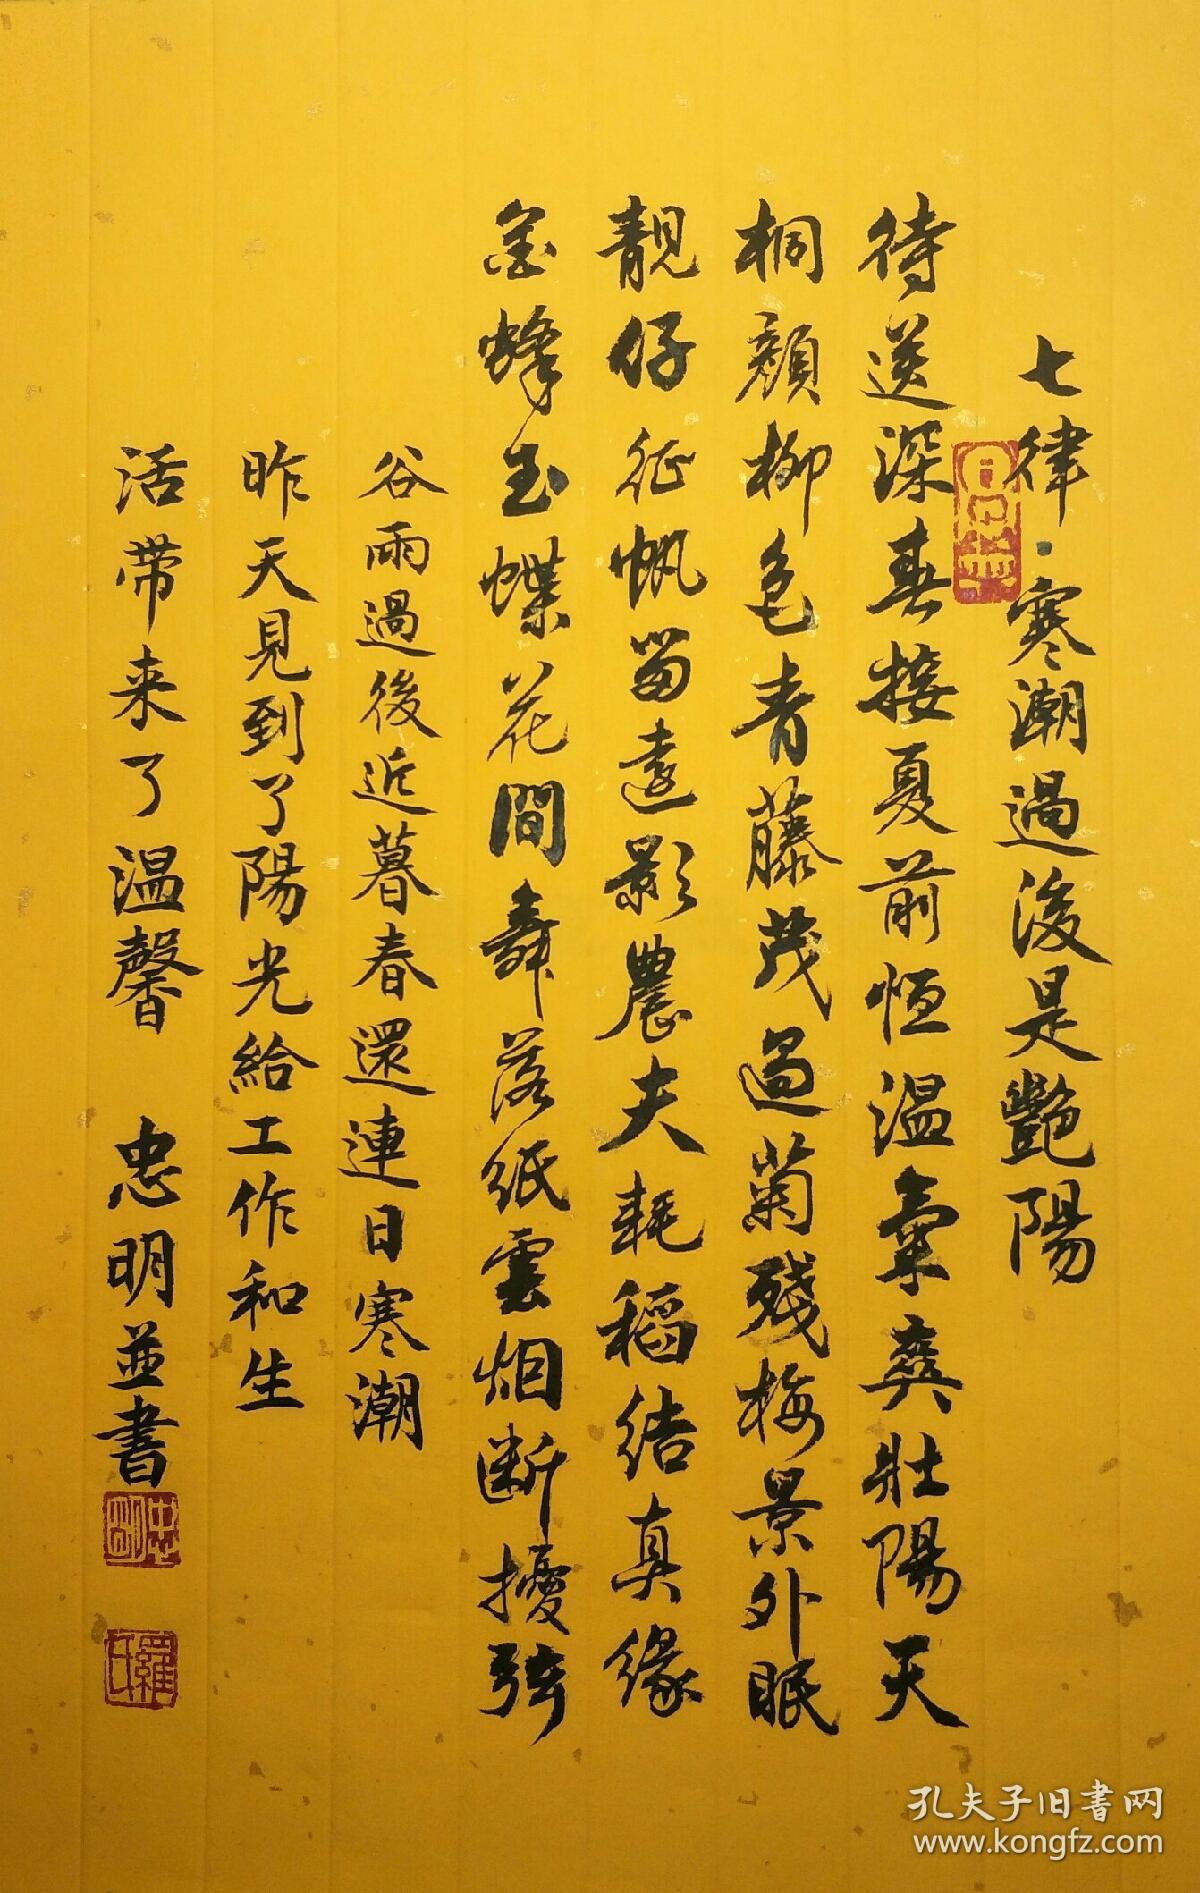 七律·寒潮過後是艷陽
待送深春接夏前恒温氣爽壯陽天
桐顏柳色青藤茂過菊殘梅景外眠
靚仔征帆留遠影農夫耗稻結真緣
金蜂玉蝶花間舞落紙雲烟断擾弦
谷雨過後近暮春還連日寒潮
昨天見到了陽光給工作和生
活带来了温馨 忠明並書
忠明
羅氏
孔夫子旧書网
www.kongfz.com